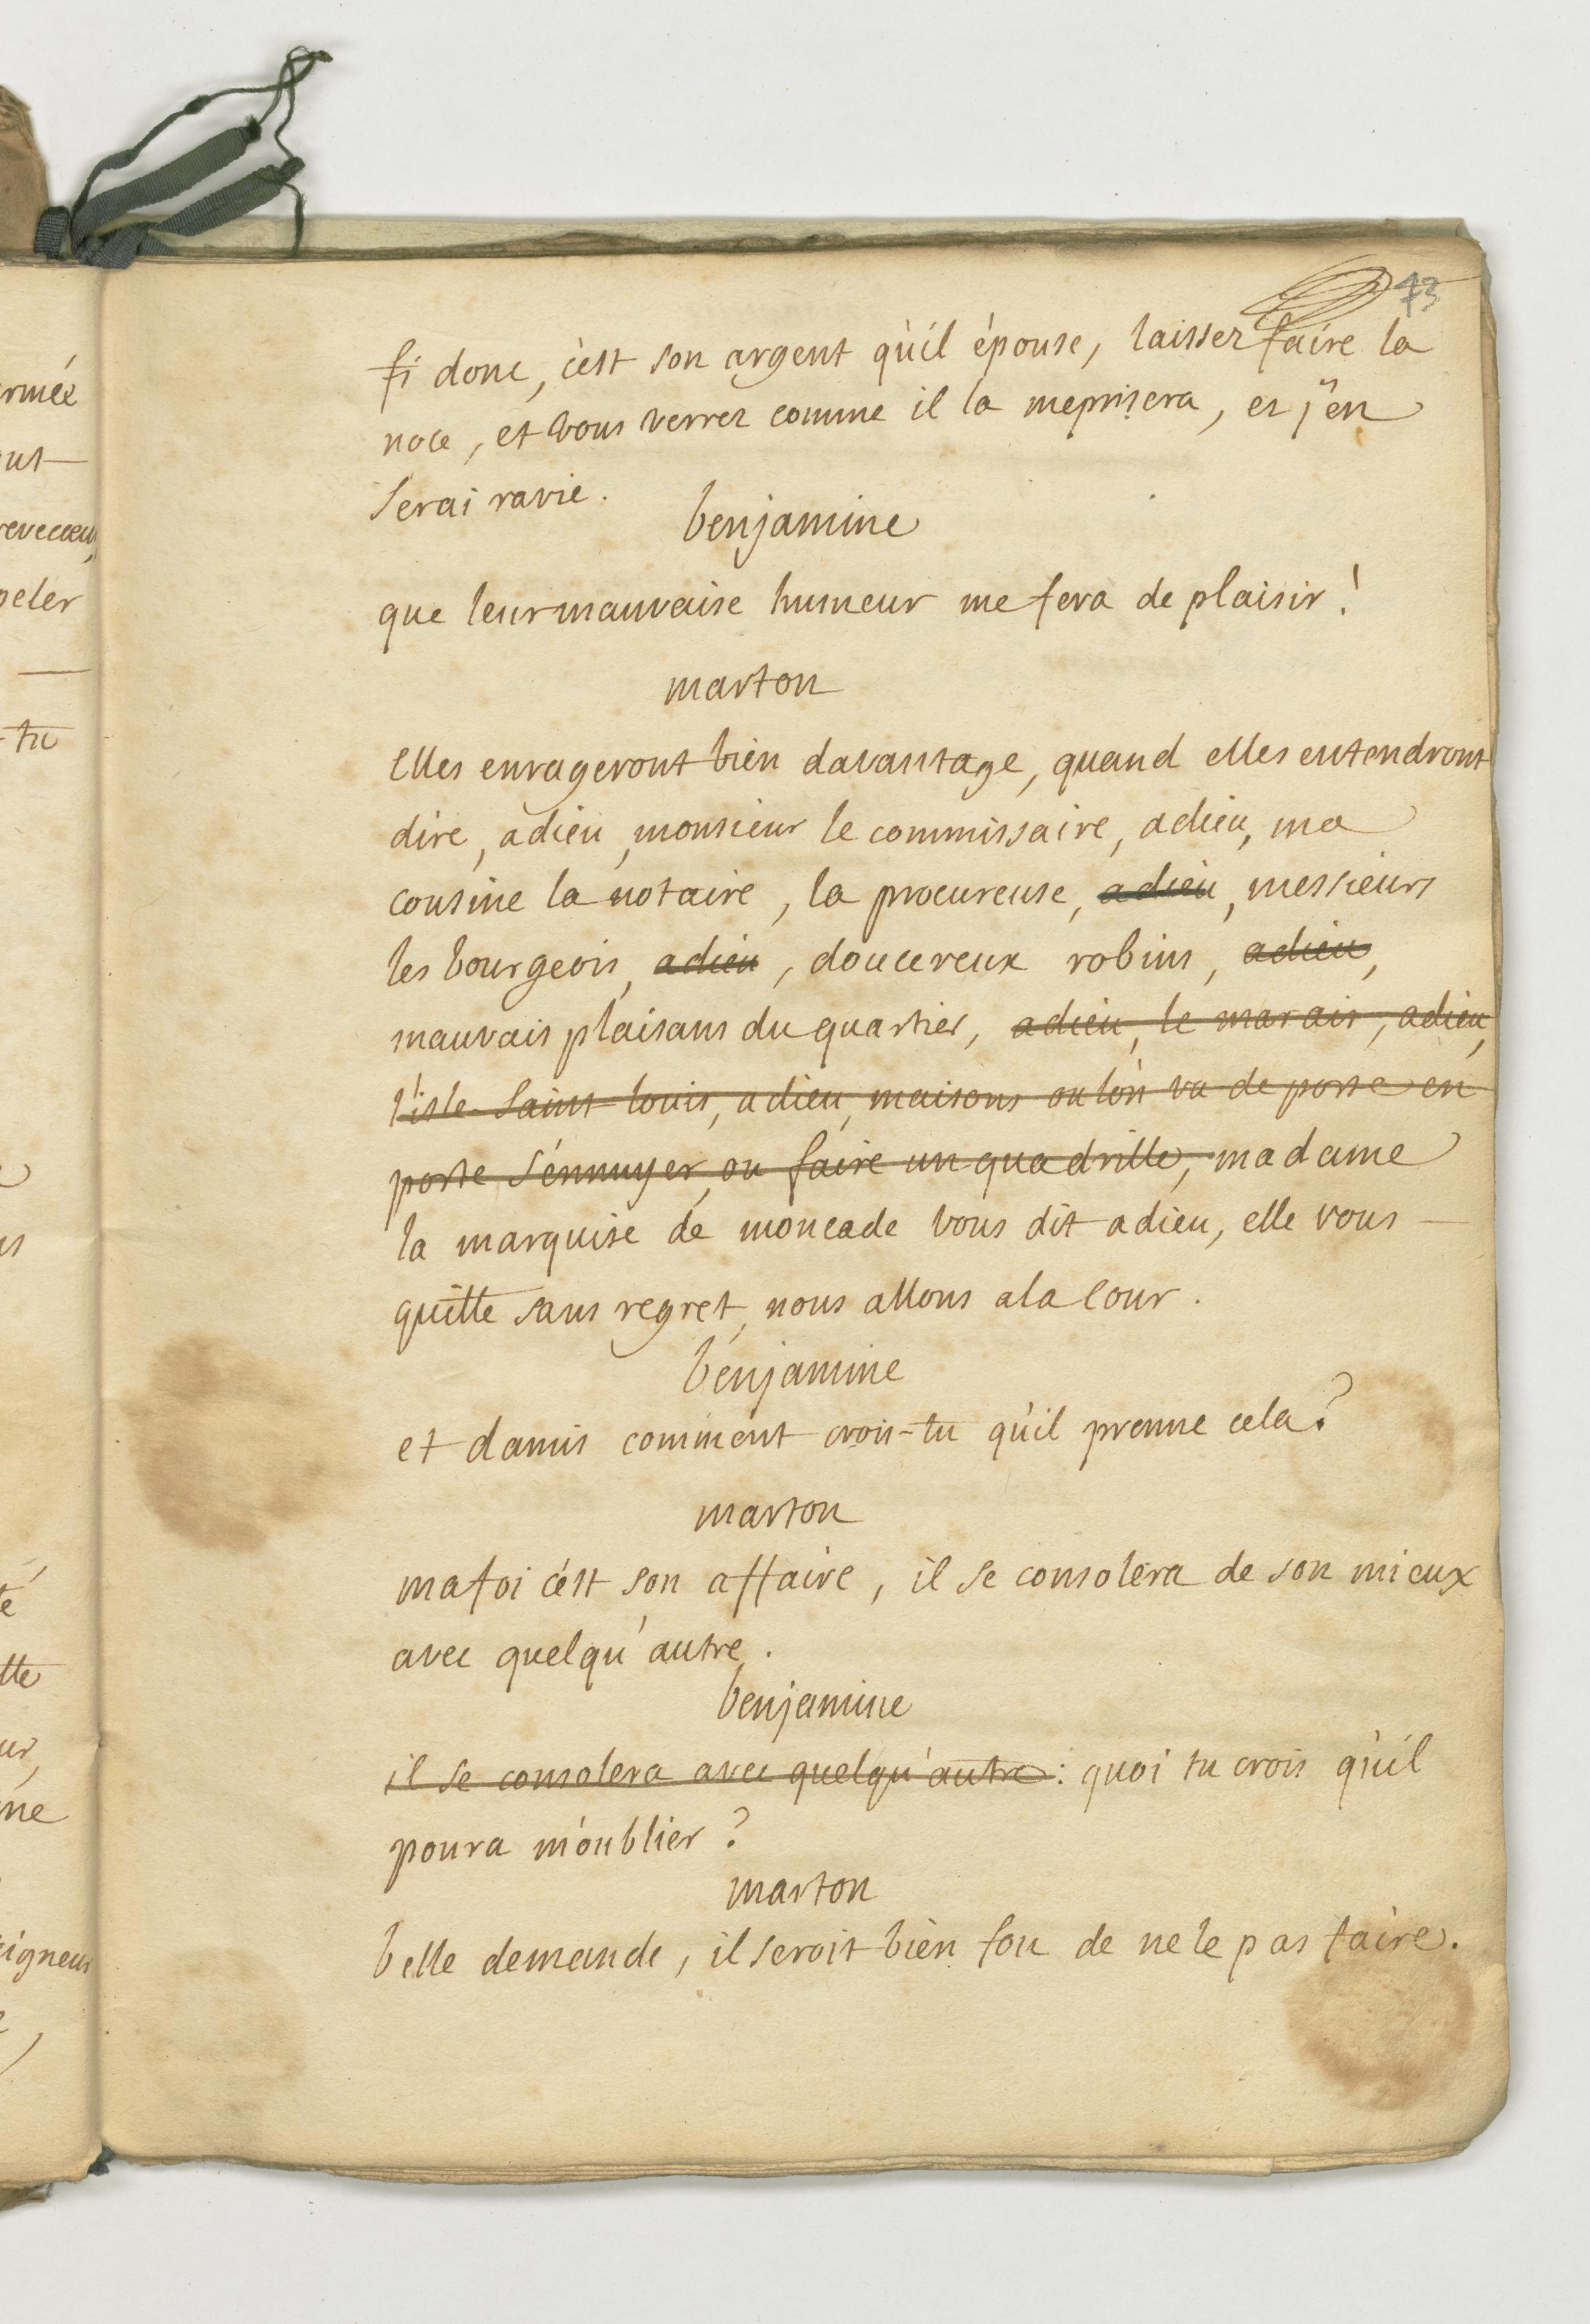 73
fi donc, c'est son argent qu'il épouse, laissez faire la
noce, et vous verrez comme il la meprisera, et j'en
serai ravie.
benjamine
que leur mauvaise humeur me fera de plaisir!
marton
elles enrageront bien davantage, quand elles entendront
dire, adieu, monsieur le commissaire, adieu, ma
cousine la notaire, la procureuse, adieu, messieurs
les bourgeois, adieu, doucereux robins, adieu,
mauvais plaisans du quartier, adieu, le marais, adieu,
l'isle saint louis, adieu, maisons ou l'on va de porte en
porte s'ennuyer, ou faire un quadrille, madame
la marquise de moncade vous dit adieu, elle vous
quitte sans regret, nous allons a la cour.
benjamine
et damis comment crois-tu qu'il prenne cela?
marton
ma foi c'est son affaire, il se consolera de son mieux
avec quelqu'autre.
benjamine
il se consolera avec quelqu'autre: quoi tu crois qu'il
poura m'oublier?
marton
belle demande, il seroit bien fou de ne le pas faire.
rmée
ut
evecœur,
peler
-tu
us
té
tte
ur,
me
eigneur